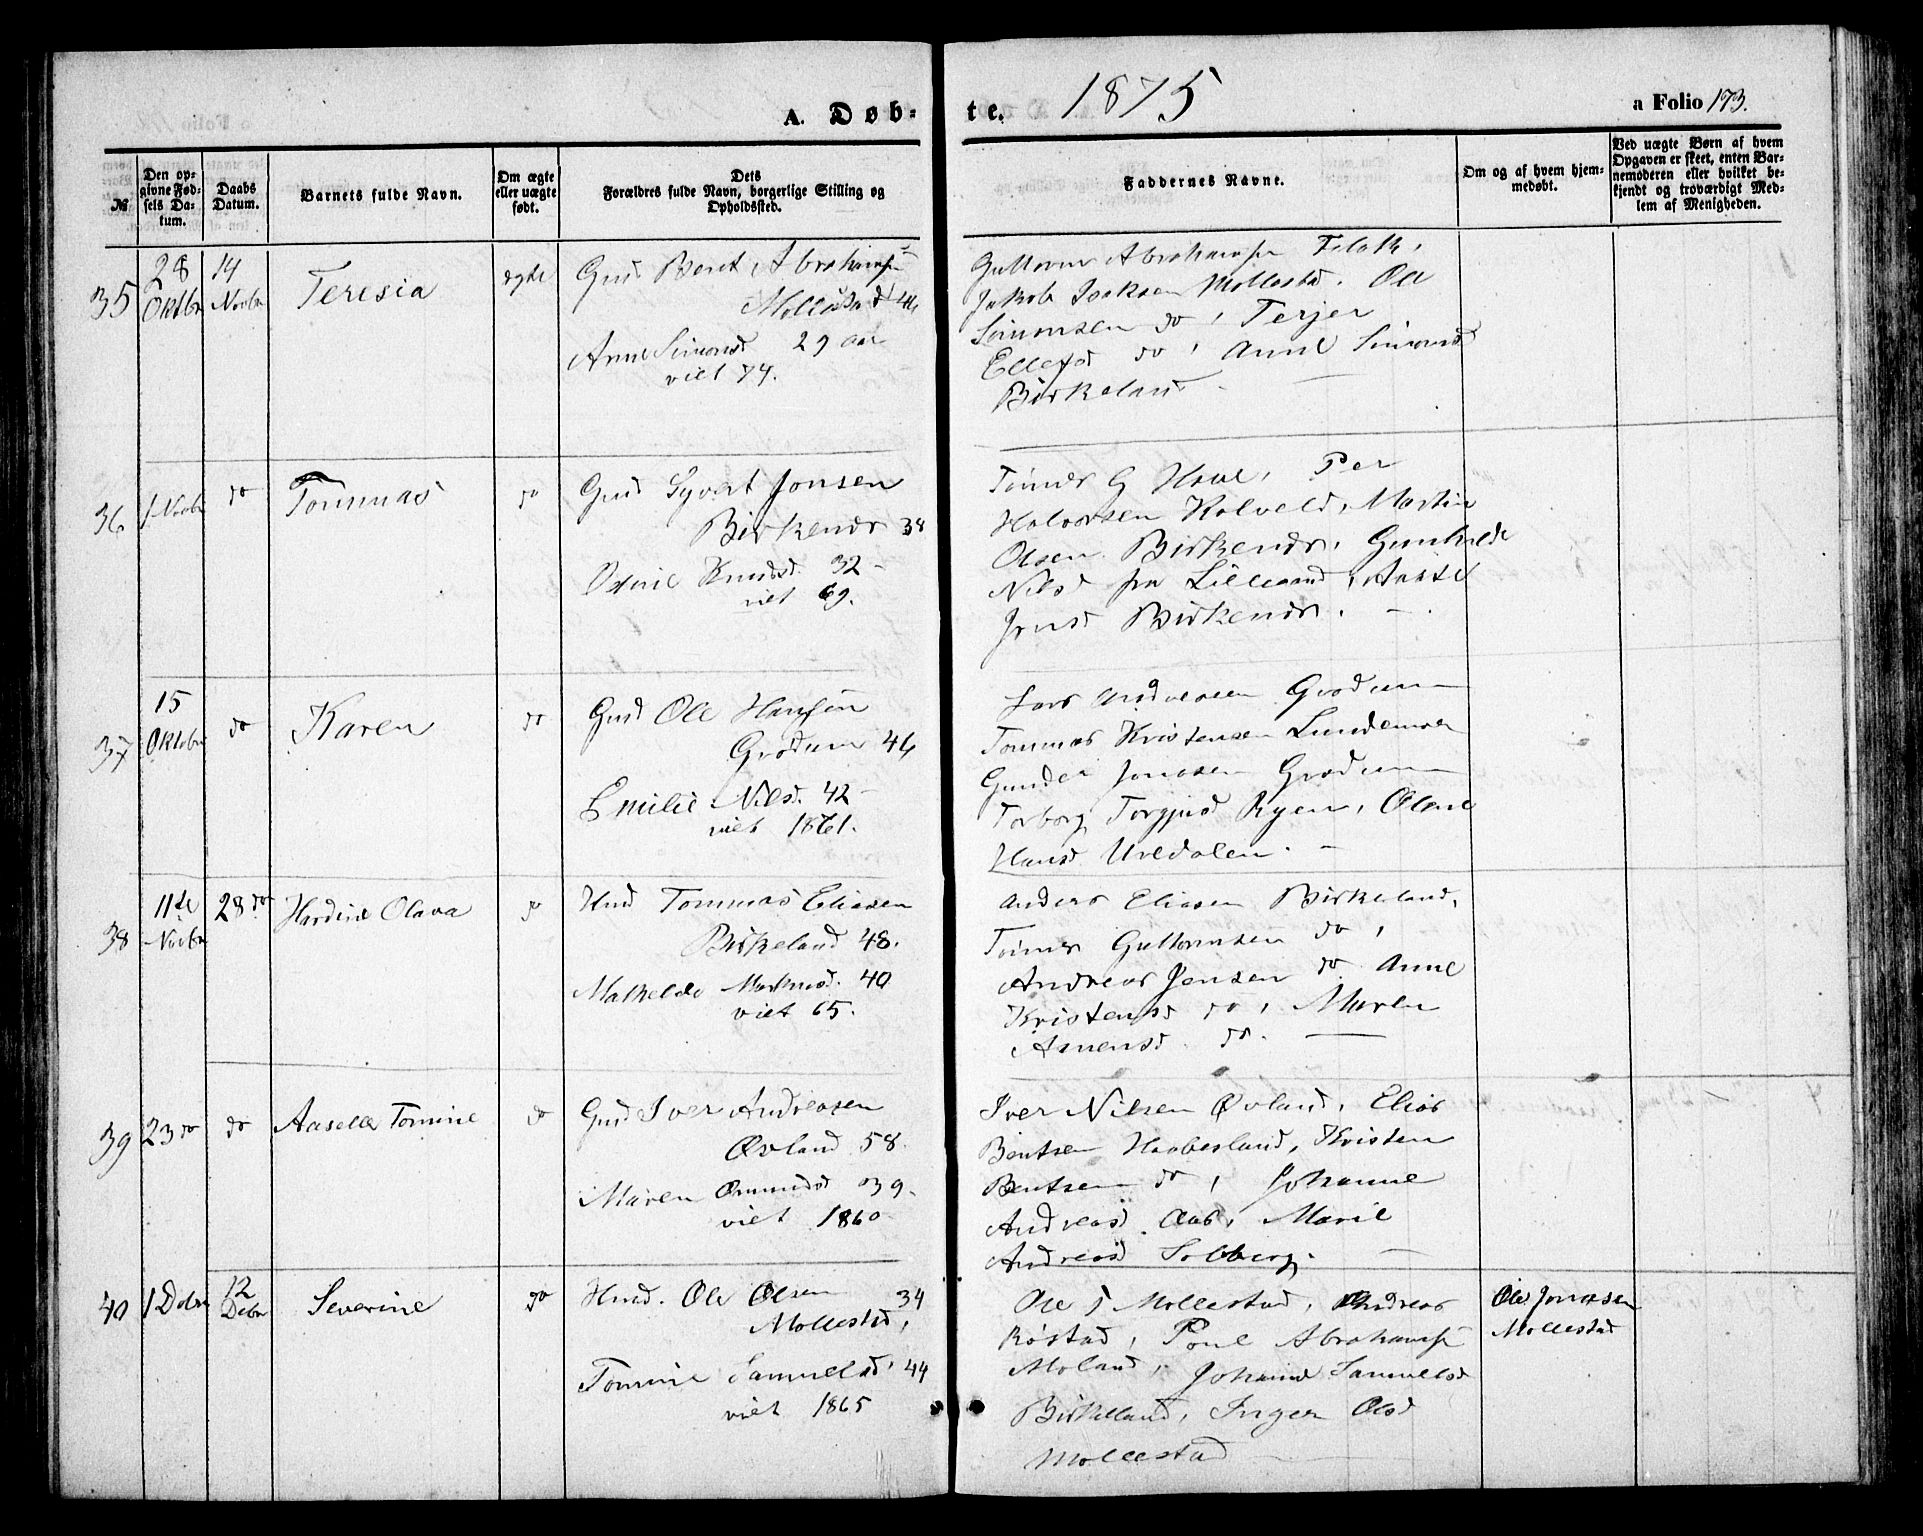 A. Døb-te. 1875
a Folio 173.
№
Den opgivne Fødsels Datum.
Daabs Datum.
Barnets fulde Navn.
Om ægte eller uægte født.
Dets Forældres fulde Navn, borgerlige Stilling og Opholdssted.
Faddernes Navne.
Om og af hvem hjemmedøbt.
Ved uægte Børn af hvem Opgaven er skeet, enten Barnemoderen eller hvilket bekjendt og troværdigt Medlem af Menigheden.
35
28 Oktbr
14 Novbr
Teresia
ægte
Gmd Beret Abrahamsen
Mollestad 44
Anne Simonsd 29 aar
viet 74.
Guttorm Abrahamsen
Jakob Isaksen Mollestad. Ole
Simonsen do, Terjer
Ellefsd do, Anne Simonsd
Birkeland
36
1 Novbr
do
Tommas
do
Gmd Syvert Jonsen
Birkenes 38
Knudsd. 32
viet 69.
Tønnes G Per
Halvorsen Kolveld, Martin
Olsen Birkenes, Gunhilde
Nilsd fra Lillesand, Aaste
Jensd Birkenes.
37
15 Oktober
do
Karen
do
Gmd Ole Hansen
Grødum 46
Emilie Nilsd. 42
viet 1861.
Lars Andersen Grødum
Tommas Kristensen Lundemoen
Gunder Jonasen Grødum
Torborg Torgjusd Ryen, Olene
Hansd Uvedalen.
38
11te Novbr
28 do
Hardine Olava
do
Hmd Tommas Eliasen
Birkeland 48.
Mathelde 40
viet 65.
Anders Eliasen Birkeland,
Tønnes Guttormsen do,
Andreas Jensen do Anne
Kristensd do, Maren
Amensd do.
39
23 do
do
Aaselle Tomine
do
Gmd Iver Andreasen
Øvland 58.
Maren Omundsd 39.
viet 1860
Iver Nilsen Øvland, Elias
Bentsen Haabesland, Kristen
Bentsen do, Johanne
Andreasd Aas, Marie
Andreasd Solberg.
40
1 Debr
12 Debr
Severine
do
Hmd. Ole Olsen 34
Mollestad,
Tomine Samuelsd 44
viet 1865
Ole J Mollestad, Andreas
Røstad, Poul Abrahamsen
Moland, Johanne Samuelsd
Birkeland, Inger Olsd
Mollestad
Ole Jonassen
Mollestad